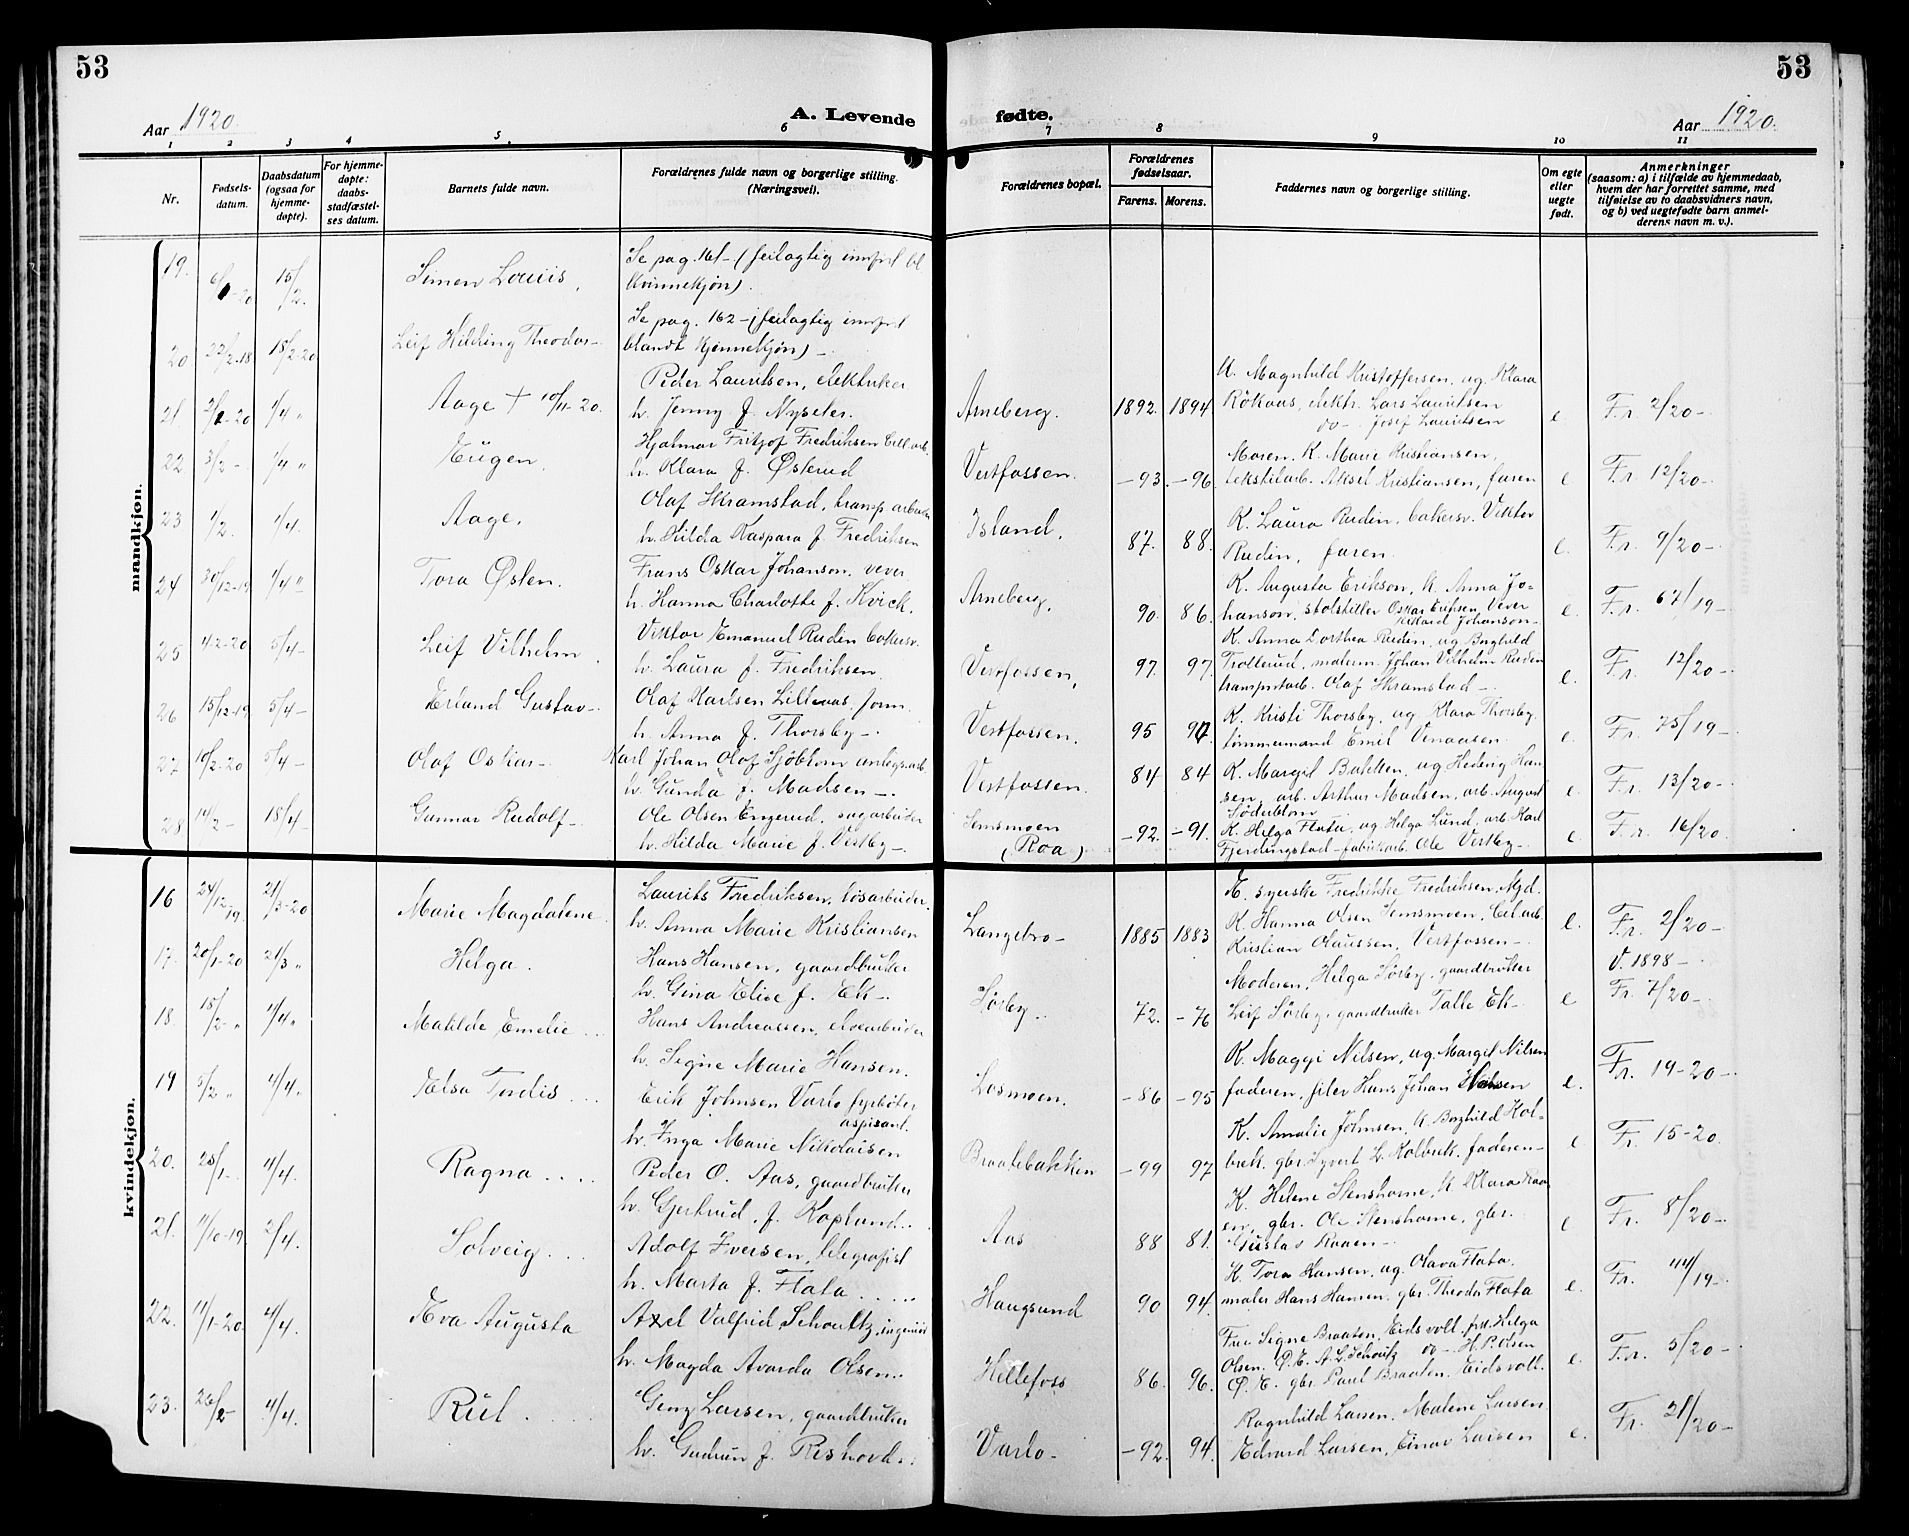 53
53
Aar 1920.
A. Levende fødte.
Aar 1920.
1 2 3 4 5. 6 7 8 9 10 11
Nr.
Fødsels-
datum.
Daabsdatum
(ogsaa for
hjemme-
døpte).
For hjemme-
døpte:
daabs-
stadfæstel-
ses datum.
Barnets fulde navn.
Forældrenes fulde navn og borgerlige stilling.
(Næringsvei).
Forældrenes bopæl.
Forældrenes
fødselsaar.
Farens. Morens.
Faddernes navn og borgerlige stilling.
Om egte
eller
uegte
født.
Anmerkninger
(saasom: a) i tilfælde av hjemmedaab,
hvem der har forrettet samme, med
tilføielse av to daabsvidners navn,
og b) ved uegtefødte barn anmel-
derens navn m. v.).
mandkjøn.
19. 6/1-20 15/2. Simen Louis, Se pag. 161- (feilagtig innført bl
Kvinnekjøn).
20 22/2-18 18/2-20 Leif Hilding Theodor- Se pag. 162- (feilagtig innført
blandt Kvinnekjøn)-
21. 2/1-20 4/4 " Aage + 10/11-20. Peder Lauritsen, elektriker
h. Jenny f. Nyseter.
Arneberg. 1892. 1894. K. Magnhild Kristoffersen, ug. Klara
Røkaas, elektr. Lars Lauritsen
do- Josef Lauritsen
e. Fr. 2/20-
22 3/2 - 4/4 " Eugen. Hjalmar Fritjof Fredriksen Cell.arb.
h. Klara f. Østerud
Vestfossen. -93. -96. Moren. K. Marie Kristiansen,
tekstilarb. Aksel Kristiansen, faren
e Fr. 12/20-
23 1/2. 4/4. Aage. Olaf Skramstad, transp. arbeider
h. Hilda Kaspara f. Fredriksen
Island. 87. 88. K. Laura Rudin, bokersv. Viktor
Rudin, faren.
e. Fr. 9/20-
24 30/12-19 4/4 " Tora Østen. Frans Oskar Johanson, vever
h. Hanna Charlotte f. Kvick.
Arneberg, 90. 86. K. Augusta Erikson, K. Anna Jo-
hanson, stolstiller Oskar Eriksen, Vever
Rikard Johanson-
e. Fr. 67/19-
25 4-2-20 5/4- Leif Vilhelm. Viktor Emanuel Rudin bokersv.
h. Laura f. Fredriksen.
Vestfossen, 97. 97. K. Anna Dorthea Rudin, ug Borghild
Trollerud, malerm. Johan Vilhelm Rudin
transportarb. Olaf Skramstad-.
e. Fr. 12/20-
26 15/12-19 5/4- Erland Gustav-. Olaf Karlsen Lilleaas, form.
h. Anna f. Thorsby-.
Vestfossen. 95 97. K. Kristi Thorsby, ug Klara Thorsby
tømmermand Emil Venaasen
e. Fr. 75/19-
27 10/2-20 5/4- Olaf Oskar- Karl Johan Olaf Sjöblom anlegsarb.
h. Gunda f. Madsen-.
Vestfossen. 84 84 K. Margit Bakken, ug Hedvig Han-
sen, arb. Arthur Madsen, arb. August
Söderblom
e. Fr. 13/20-
28 14/2- 18/4- Gunnar Rudolf- Ole Olsen Engerud, sagarbeider
h. Hilda Marie f. Vestby-.
Semsmoen
(Roa)
-92. -91. K. Helga Flata, ug Helga Lund, arb Karl
Fjerdingstad- fabrikarb. Ole Vestby-
e. Fr. 16/20.
kvindekjøn.
16 24/12 19. 21/3-20 Marie Magdalene. Laurits Fredriksen, løsarbeider,
h. Anna Marie Kristiansen
Langebro- 1885 1883 E. syerske Fredrikke Fredriksen, Mjd.
K. Hanna Olsen Semsmoen, Cel.arb.
Kristian Olaussen, Vestfossen-
e. Fr. 2/20-
V. 1898-
17. 20/1-20 21/3 " Helga. Hans Hansen, gaardbruker
h. Gina Elise f. Ek-.
Sørby.. 72. -76 Moderen, Helga Sørby, gaardbruker
Leif Sørby, gaardbruker Talle Ek-.
e Fr. 7/20-.
18. 15/2- " 4/4 " Matilde Emelie... Hans Andreassen, elvearbeider
h. Signe Marie Hansen.
Losmoen. -86 -95 K. Maggi Nilsen, ug. Margit Nilsen
faderen, filer Hans Johan Nilsen
e. Fr. 19-20-
19 5/2 " 4/4. Elsa Tordis... Erik Johnsen Varlo fyrbøter
aspirant.
h. Inga Marie Nikolaisen
Braatebakken -99 97 K. Amalie Johnsen, K Borghild Kol-
brek. gbr. Syvert L. Kolbrek. faderen-
e Fr. 15-20.
20. 28/1- 4/4. Ragna.... Peder O. Aas, gaardbruker
h. Gjertrud, f. Kopland..
Aas 88 81. K. Helene Stenshorne, K Klara Raa-
en, gbr. Ole Stenshorne, gbr.
Gustav Raaen-
e Fr. 8/20-.
21. 11/10-19. 2/4. Solveig... Adolf Iversen, telegrafist
h. Marta f. Flata.....
Haugsund 90 94. K. Tora Hansen, ug. Olava Flata.
maler Hans Hansen. gbr. Theodor Flata
e. Fr. 44/19-
22. 11/1-20. 4/4. Eva Augusta Axel Valfrid Schoultz, ingeniør
h. Magda Avarda Olsen..
Hellefoss 86. 96. Fru Signe Braaten, Eidsvoll. frk. Helga
Olsen. Ø. E. A. L. Schoultz do-. H. P. Olsen
Ø. E. gbr. Paul Braaten. Eidsvoll.
e. Fr. 5/20-
23. 26/2- 4/4. Rut.... Genz Larsen, gaardbruker
h. Gudrun f. Reshovd..
Varlo- -92. 94. Ragnhild Larsen. Malene Larsen
Edvard Larsen, Einar Larsen
e. Fr. 21/20-